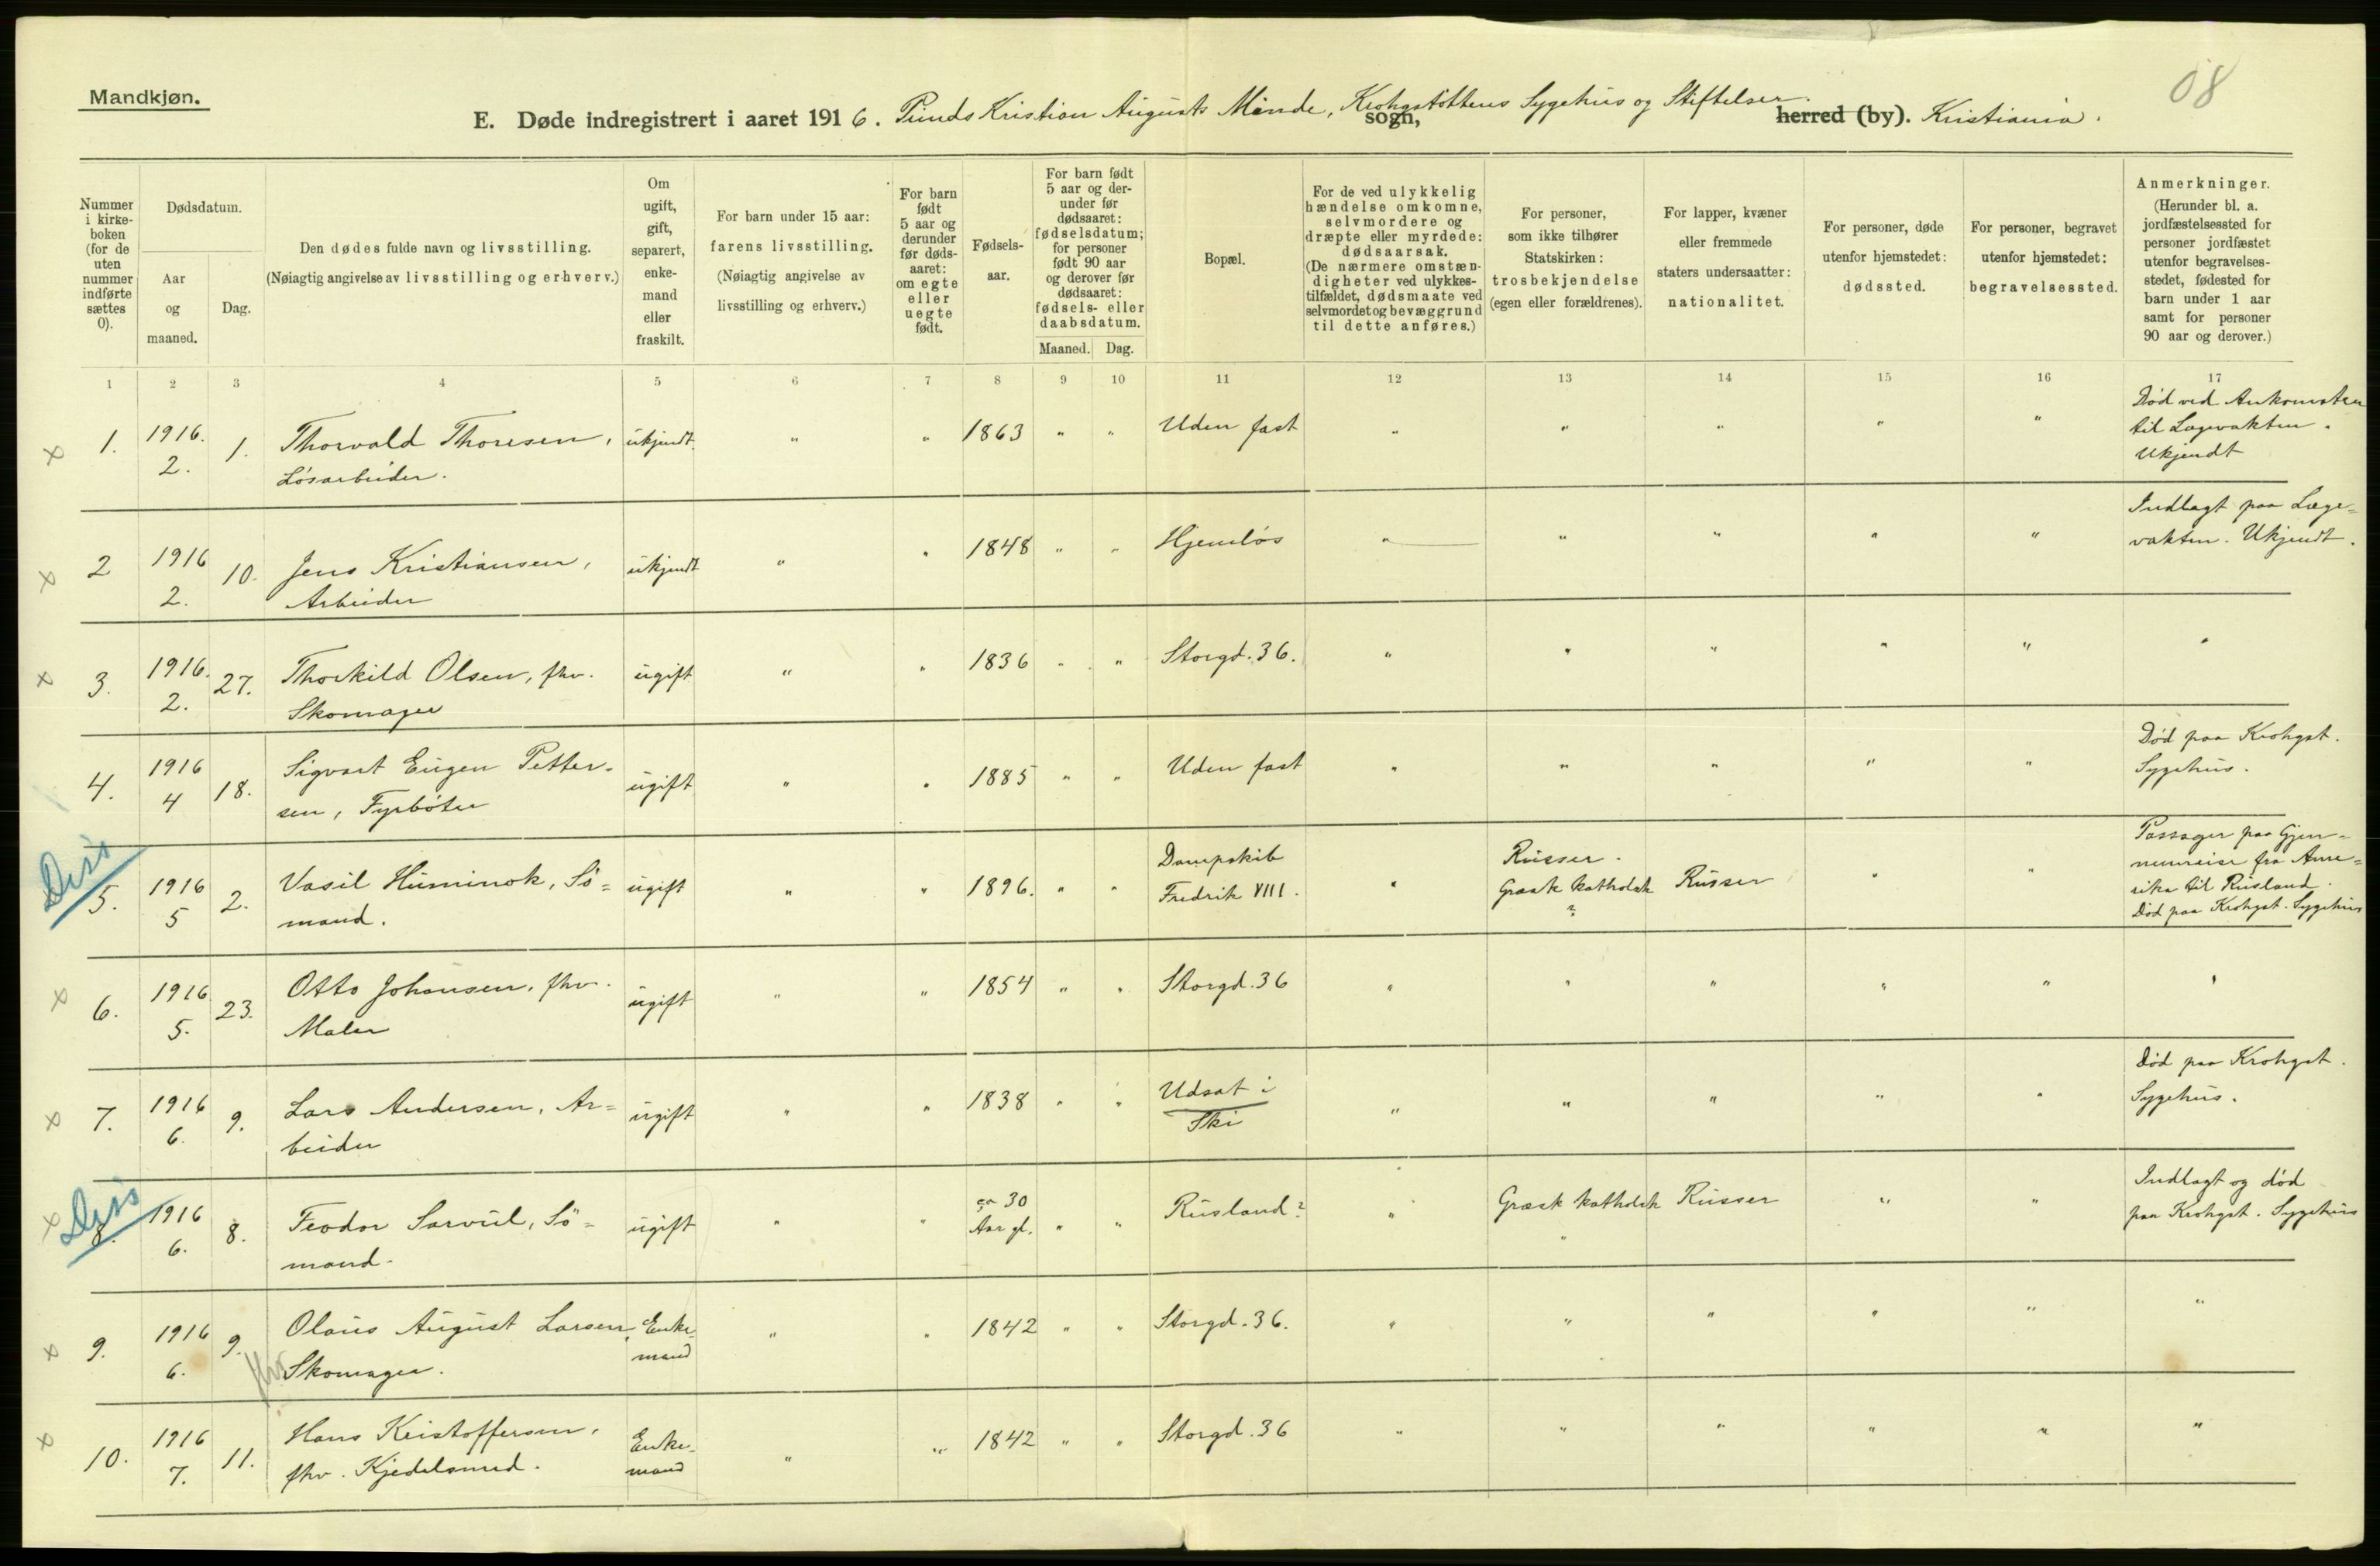 08
Mandkjøn.
E. Døde indregistrert i aaret 1916. Prinds Kristian Augusts Minde, Krohgstøttens Sygehus og Stiftelser. sogn, herred (by). Kristiania.
Nummer i kirkeboken (for de uten nummer indførte sættes 0).
Dødsdatum.
Aar og maaned.
Dag.
Den dødes fulde navn og livsstilling.
(Nøiagtig angivelse av livsstilling og erhverv.)
Om ugift, gift, separert, enkemand eller fraskilt.
For barn under 15 aar: farens livsstilling.
(Nøiagtig angivelse av livsstilling og erhverv.)
For barn født 5 aar og derunder før dødsaaret: om egte eller uegte født.
Fødselsaar.
For barn født 5 aar og derunder før dødsaaret: fødselsdatum; for personer født 90 aar og derover før dødsaaret: fødsels- eller daabsdatum.
Maaned. Dag.
Bopæl.
For de ved ulykkelig hændelse omkomne, selvmordere og dræpte eller myrdede: dødsaarsak.
(De nærmere omstændigheter ved ulykkestilfældet, dødsmaate ved selvmordet og bevæggrund til dette anføres.)
For personer, som ikke tilhører Statskirken: trosbekjendelse (egen eller forældrenes).
For lapper, kvæner eller fremmede staters undersaatter: nationalitet.
For personer, døde utenfor hjemstedet: dødssted.
For personer, begravet utenfor hjemstedet: begravelsessted.
Anmerkninger.
(Herunder bl. a. jordfæstelsessted for personer jordfæstet utenfor begravelsesstedet, fødested for barn under 1 aar samt for personer 90 aar og derover.)
1 2 3 4 5 6 7 8 9 10 11 12 13 14 15 16 17
x 1. 1916. 2. 1. Thorvald Thoresen, Løsarbeider. ukjendt. " " 1863 " " Uden fast " " " " " Død ved Ankomsten til Lægevakten. Ukjendt
x 2 1916 2. 10. Jens Kristiansen, Arbeider ukjendt " " 1848 " " Hjemløs " " " " " Indlagt paa Lægevakten. Ukjendt.
x 3. 1916. 2. 27. Thorkild Olsen, fhv. Skomager ugift " " 1836 " " Storgd. 36. " " " " " "
4. 1916 4 18. Sigvart Eugen Pettersen, Fyrbøter ugift " " 1885 " " Uden fast " " " " " Død paa Krohgst. Sygehus.
Diss 5. 1916 5 2. Vasil Huminok, Sømand. ugift " " 1896. " " Dampskib Fredrik VIII. " Russer. Græsk katholsk ? Russer " " Passager paa Gjennemreise fra Amerika til Rusland. Død paa Krohgst. Sygehus
x 6. 1916 5. 23. Otto Johansen, fhv. Maler ugift " " 1854 " " Storgd. 36 " " " " " "
x 7. 1916 6. 9. Lars Andersen, Arbeider ugift " " 1838 " " Udsat i Ski " " " " " Død paa Krohgst. Sygehus.
x Diss 8. 1916 6. 8. Feodor Sarvul, Sømand. ugift " " ca 30 Aar gl. " " Rusland? " Græsk katholsk " Russer " " Indlagt og død paa Krohgst. Sygehus
x 9. 1916 6. 9. Olaus August Larsen, fhv Skomager. Enkemand " " 1842 " " Storgd. 36. " " " " " "
x 10. 1916 7. 11. Hans Kristoffersen, fhv. Kjedelsmed. Enkemand " " 1842 " " Storgd. 36 " " " " " "